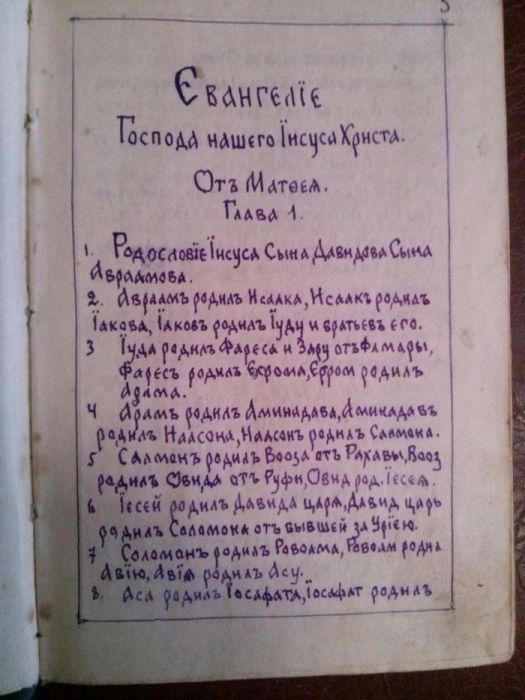 3
Євангелїе
Господа нашего Їисуса Христа.
Отъ Матѳея.
Глава 1.
1. Родословїе Їисуса Сына Давидова Сына
Авраамова.
2. Авраамъ родилъ Исаака, Исаакъ родилъ
Їакова, Їаковъ родилъ Їуду и братьевъ его.
3 Їуда родилъ Фареса и Зару отъ Фамары,
Фаресъ родилъ Есрома, Есром родилъ
Адама.
4 Арамъ родилъ Аминадава, Аминадавъ
родилъ Наасона, Наасонъ родилъ Салмона.
5 Салмонъ родилъ Вооза отъ Рахавы, Вооз
родилъ Овида отъ Руфи, Овид род. Їесея.
6 Їесей родилъ Давида царя, Давид царь
родилъ Соломона отъ бывшей за Урїею.
7 Соломонъ родилъ Ровоама, Ровоам родил
Авїю, Авїя родилъ Асу.
8. Аса родилъ Їосафата, Їосафат родилъ